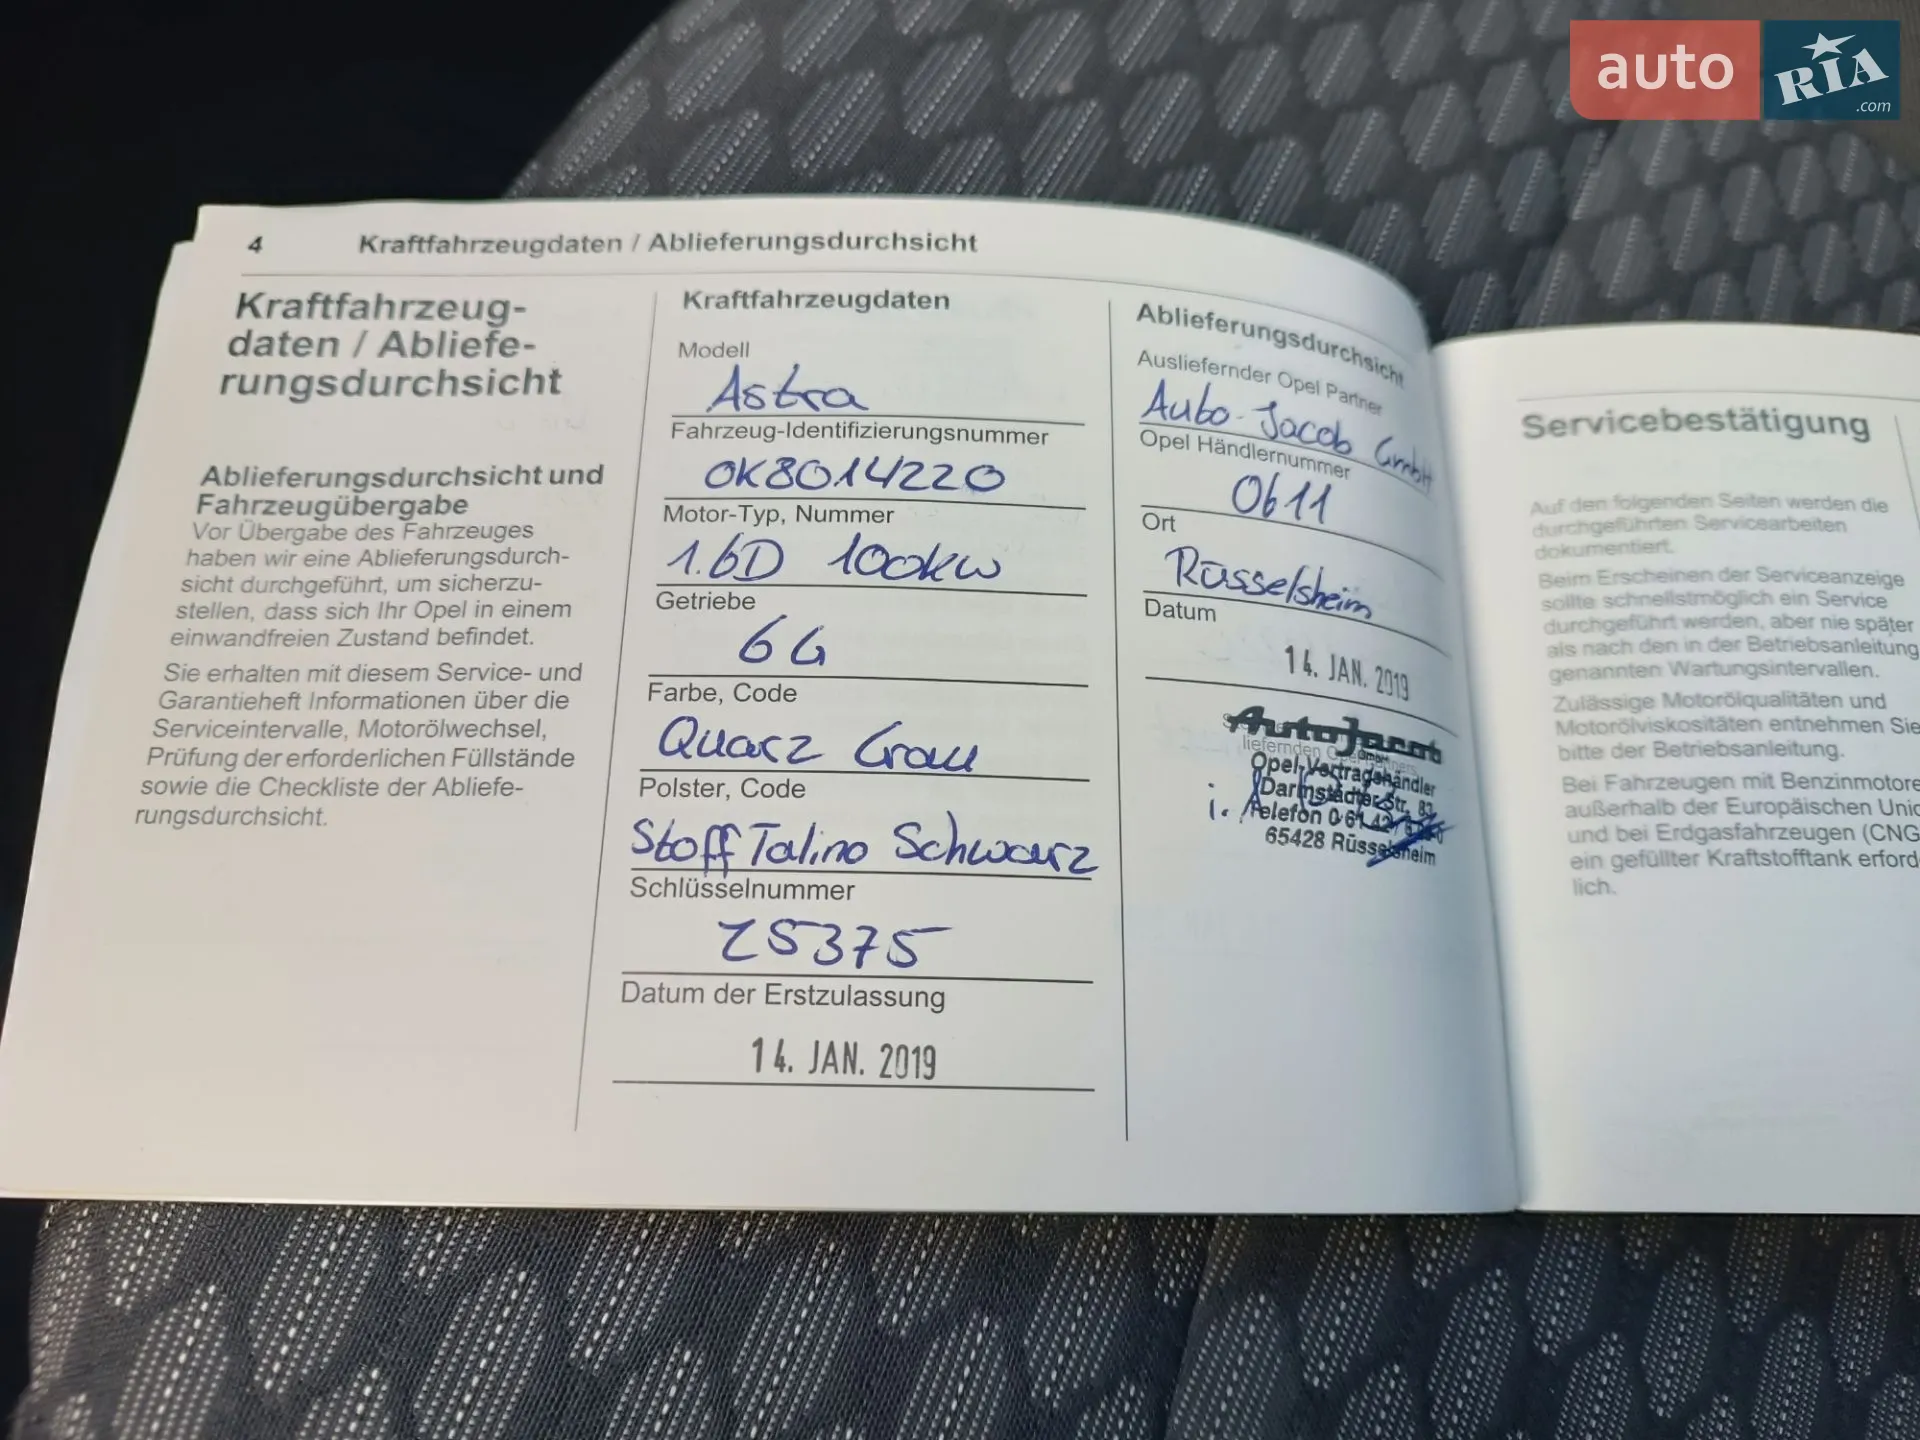 auto RIA .com
4 Kraftfahrzeugdaten / Ablieferungsdurchsicht
Kraftfahrzeug-
daten / Abliefe-
rungsdurchsicht
Ablieferungsdurchsicht und
Fahrzeugübergabe
Vor Übergabe des Fahrzeuges
haben wir eine Ablieferungsdurch-
sicht durchgeführt, um sicherzu-
stellen, dass sich Ihr Opel in einem
einwandfreien Zustand befindet.
Sie erhalten mit diesem Service- und
Garantieheft Informationen über die
Serviceintervalle, Motorölwechsel,
Prüfung der erforderlichen Füllstände
sowie die Checkliste der Abliefe-
rungsdurchsicht.
Kraftfahrzeugdaten
Modell
Astra
Fahrzeug-Identifizierungsnummer
0K8014220
Motor-Typ, Nummer
1.6D 100kW
Getriebe
6G
Farbe, Code
Quarz Grau
Polster, Code
Stoff Talino Schwarz
Schlüsselnummer
Z5375
Datum der Erstzulassung
14. JAN. 2019
Ablieferungsdurchsicht
Ausliefernder Opel Partner
Auto-Jacob GmbH
Opel Händlernummer
0611
Ort
Rüsselsheim
Datum
14. JAN. 2019
Auto Jacob
GmbH
Opel-Vertragshändler
Darmstädter Str. 83
Telefon 0 61 42
65428 Rüsselsheim
Servicebestätigung
Auf den folgenden Seiten werden die
durchgeführten Servicearbeiten
dokumentiert.
Beim Erscheinen der Serviceanzeige
sollte schnellstmöglich ein Service
durchgeführt werden, aber nie später
als nach den in der Betriebsanleitung
genannten Wartungsintervallen.
Zulässige Motorölqualitäten und
Motorölviskositäten entnehmen Sie
bitte der Betriebsanleitung.
Bei Fahrzeugen mit Benzinmotore
außerhalb der Europäischen Unio
und bei Erdgasfahrzeugen (CNG
ein gefüllter Kraftstofftank erford
lich.